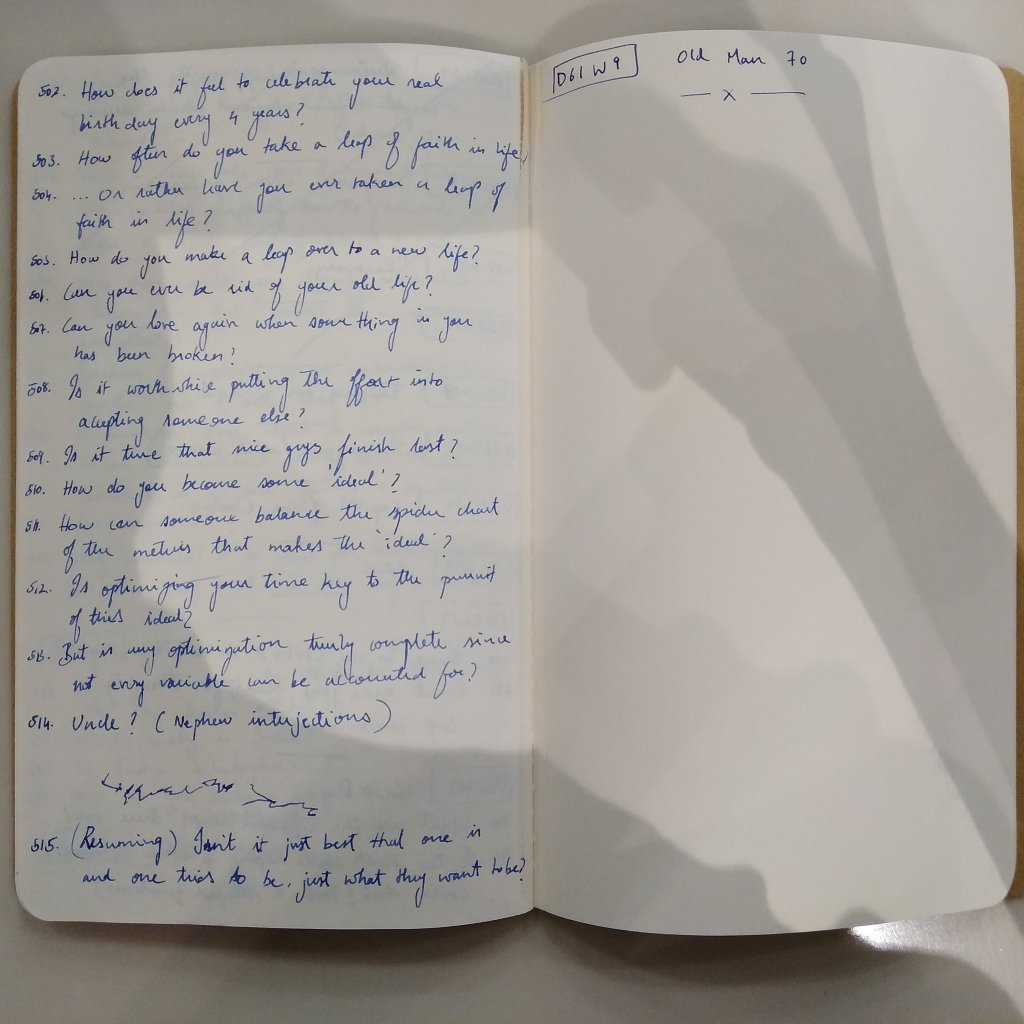 502. How does it feel to celebrate your real
birthday every 4 years?
503. How often do you take a leap of faith in life,
504. ... Or rather have you ever taken a leap of
faith in life?
505. How do you make a leap over to a new life?
506. Can you ever be rid of your old life?
507. Can you love again when something in you
has been broken?
508. Is it worthwhile putting the effort into
accepting someone else?
509. Is it true that nice guys finish last?
510. How do you become some 'ideal'?
511. How can someone balance the spider chart
of the metrics that makes the 'ideal'?
512. Is optimizing your time key to the pursuit
of this ideal?
513. But is any optimization truly complete since
not every variable can be accounted for?
514. Uncle? (Nephew interjections)
515. (Resuming) Isn't it just best that one is
and one tries to be, just what they want to be?
D61W9
Old Man 70
x